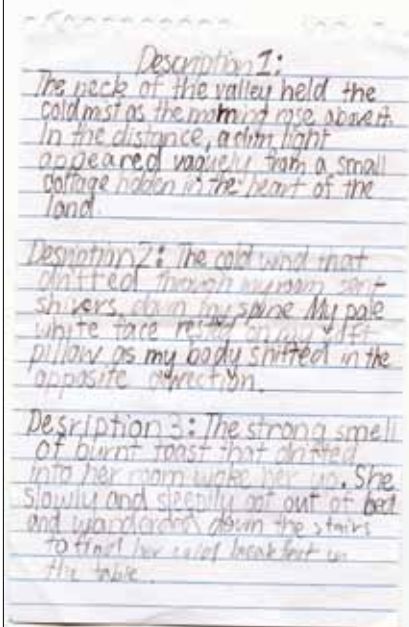 Description 1:
The neck of the valley held the
cold mist as the morning rose above it.
In the distance, a dim light
appeared vaguely from a small
cottage hidden in the heart of the
land.
Desription 2: The cold wind that
drifted through my room sent
shivers down my spine My pale
white face rested on my soft
pillow as my body shifted in the
opposite direction.
Desription 3: The strong smell
of burnt toast that drifted
into her room woke her up. She
slowly and sleepily got out of bed
and wandered down the stairs
to find her breakfast on
the table.